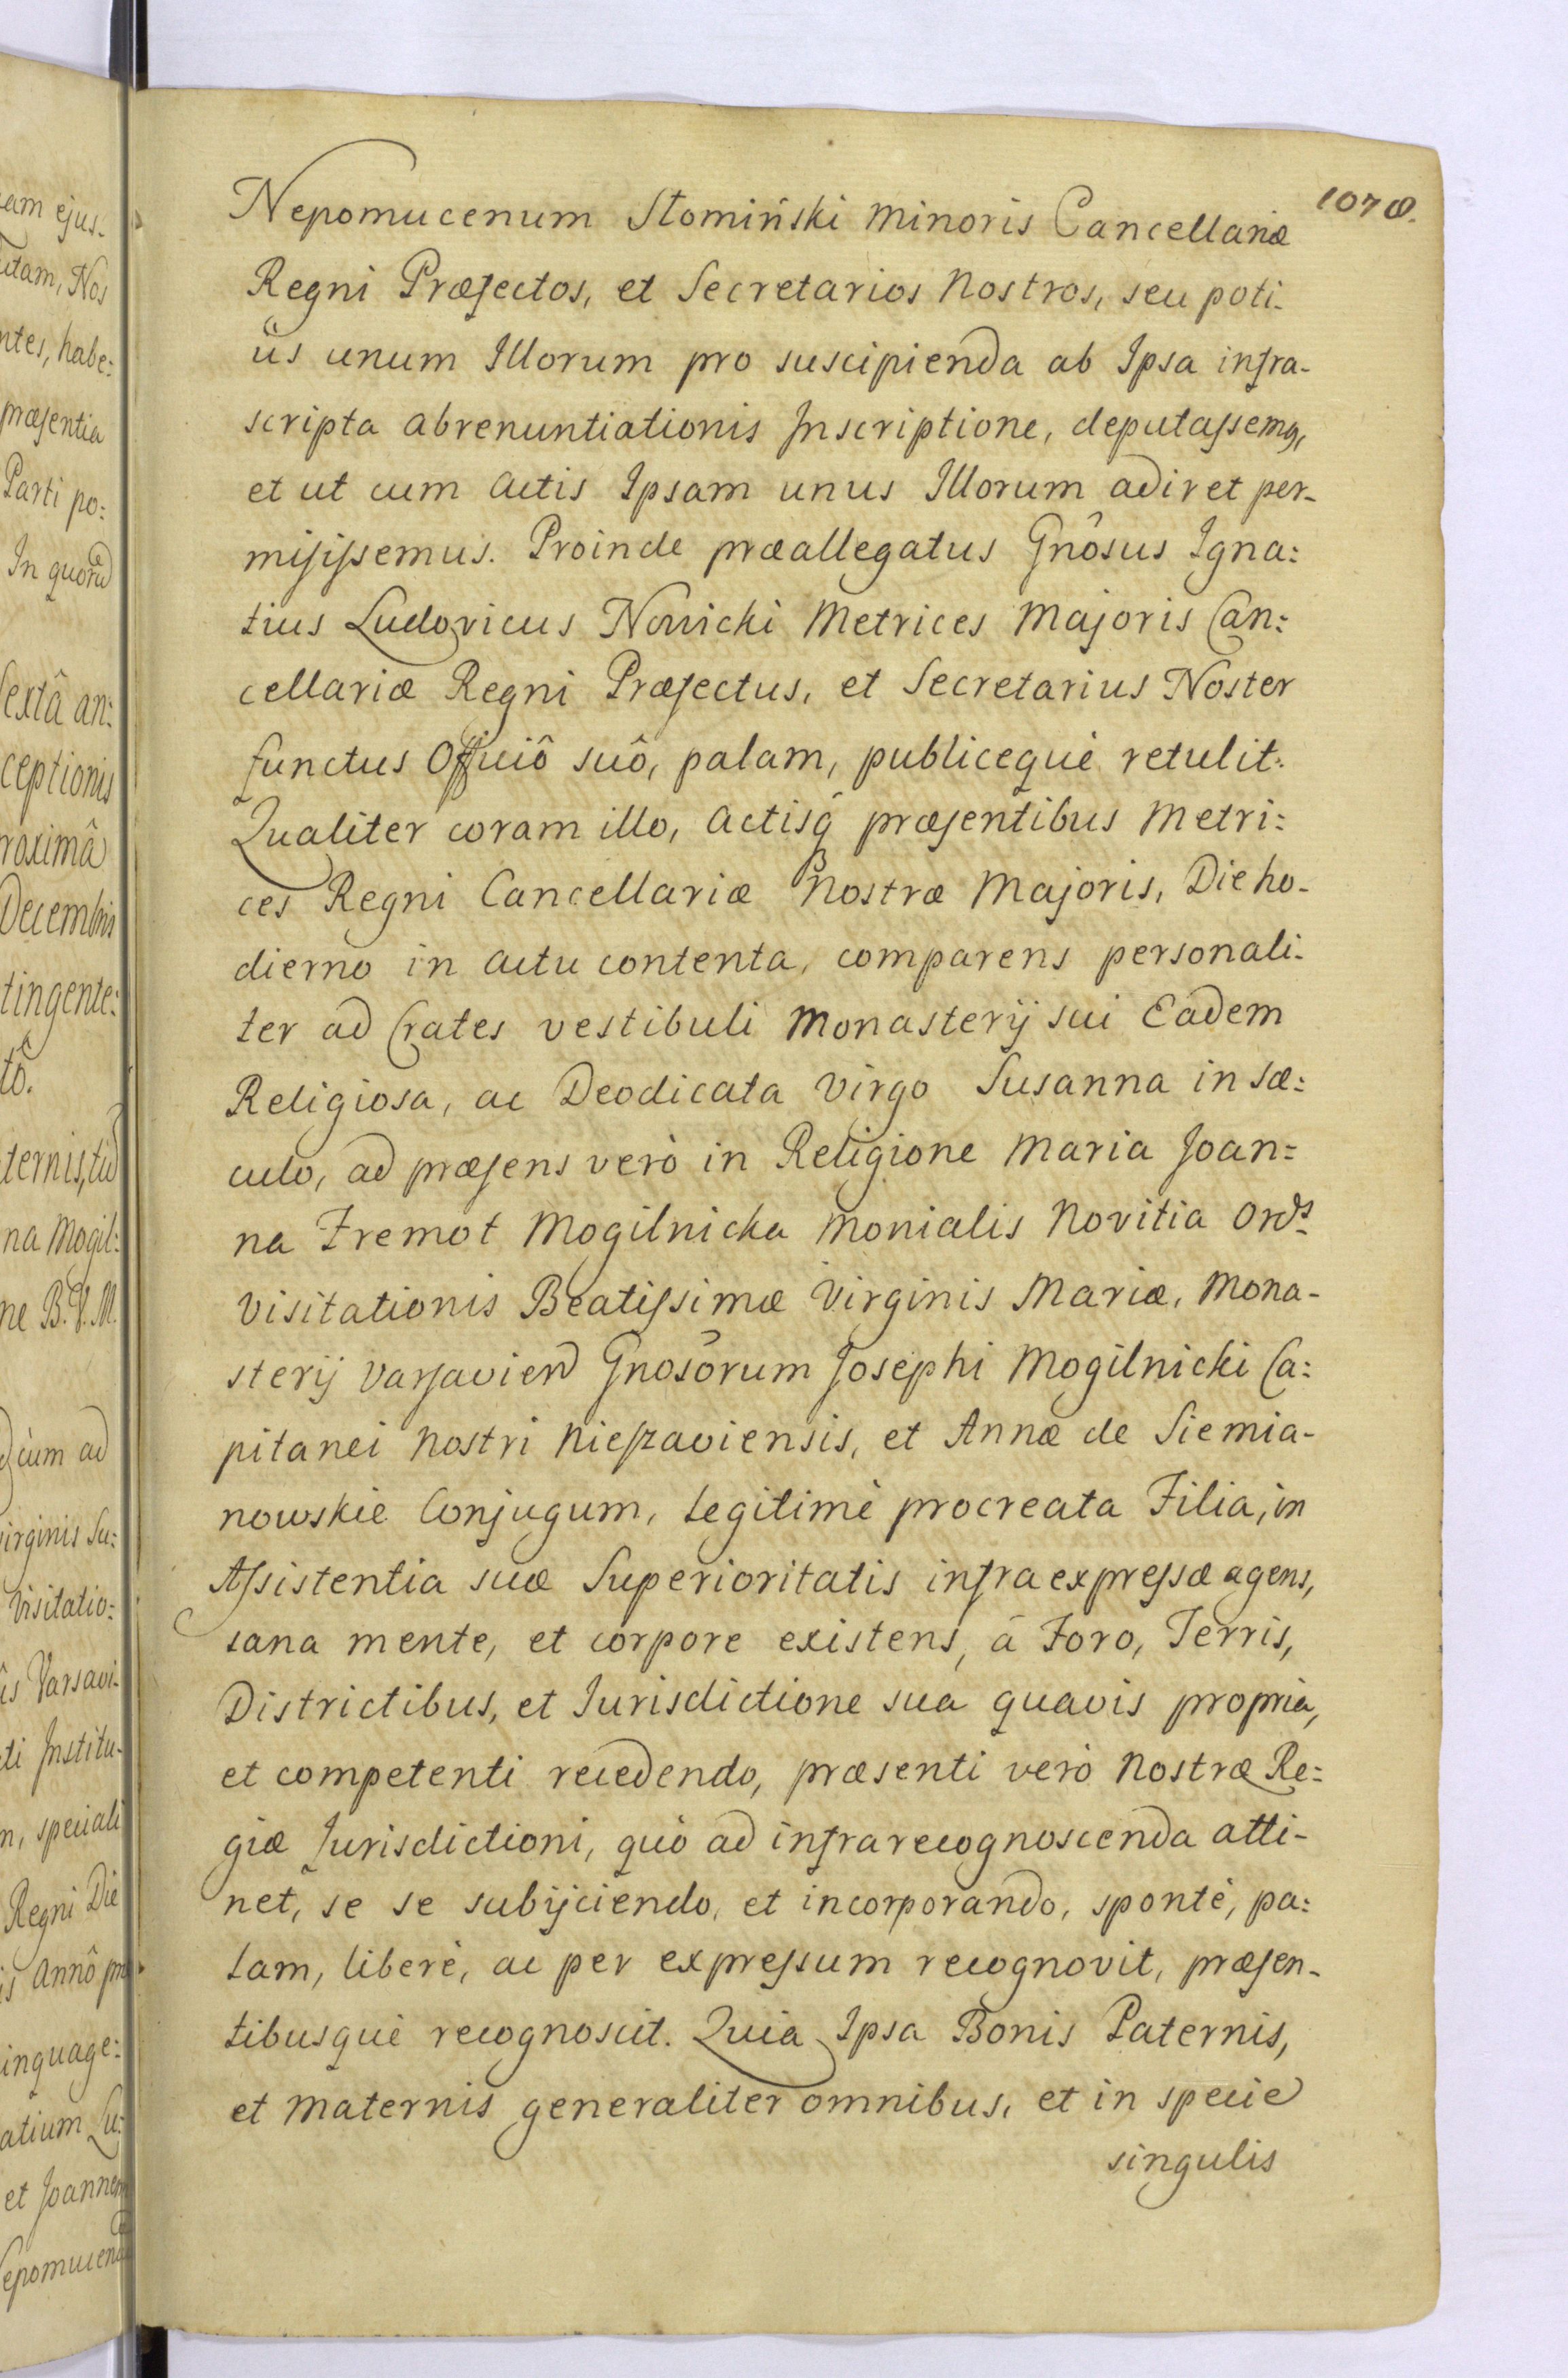 1078.
Nepomucenum Słomiński Minoris Cancellariæ
Regni Præfectos, et Secretarios Nostros, seu poti-
ùs unum Illorum pro suscipienda ab Ipsa infra-
scripta abrenuntiationis Inscriptione, deputassemq,
et ut cum Actis Ipsam unus Illorum adiret per-
misissemus. Proinde præallegatus Gnôsus Igna:
tius Ludovicus Nowicki Metrices Majoris Can:
cellariæ Regni Præfectus, et Secretarius Noster
functus Officiô suô, palam, publiceque retulit.
Qualiter coram illo, Actisq̃ præsentibus Metri:
ces Regni Cancellariæ Nostræ Majoris, Die ho-
dierno in actu contenta, comparens personali-
ter ad Crates vestibuli Monasterij sui Eadem
Religiosa, ac Deodicata Virgo Susanna in sæ:
culo, ad præsens verò in Religione Maria Joan=
na Fremot Mogilnicka Monialis Novitia Ords
Visitationis Beatissimæ Virginis Mariæ, Mona-
sterij Varsavien Gnosõrum Josephi Mogilnicki Ca:
pitanei Nostri Nieszaviensis, et Annæ de Siemia-
nowskie Conjugum, Legitimè procreata Filia, in
Assistentia suæ Superioritatis infraexpressæ agens,
sana mente, et corpore existens, à Foro, Terris,
Districtibus, et Jurisdictione sua quavis propria,
et competenti recedendo, præsenti verò Nostræ Re:
giæ Jurisdictioni, quò ad infrarecognoscenda atti-
net, se se subijciendo, et incorporando, spontè, pa:
lam, liberè, ac per expressum recognovit, præsen-
tibusquè recognoscit. Quia Ipsa Bonis Paternis,
et Maternis generaliter omnibus, et in specie
singulis